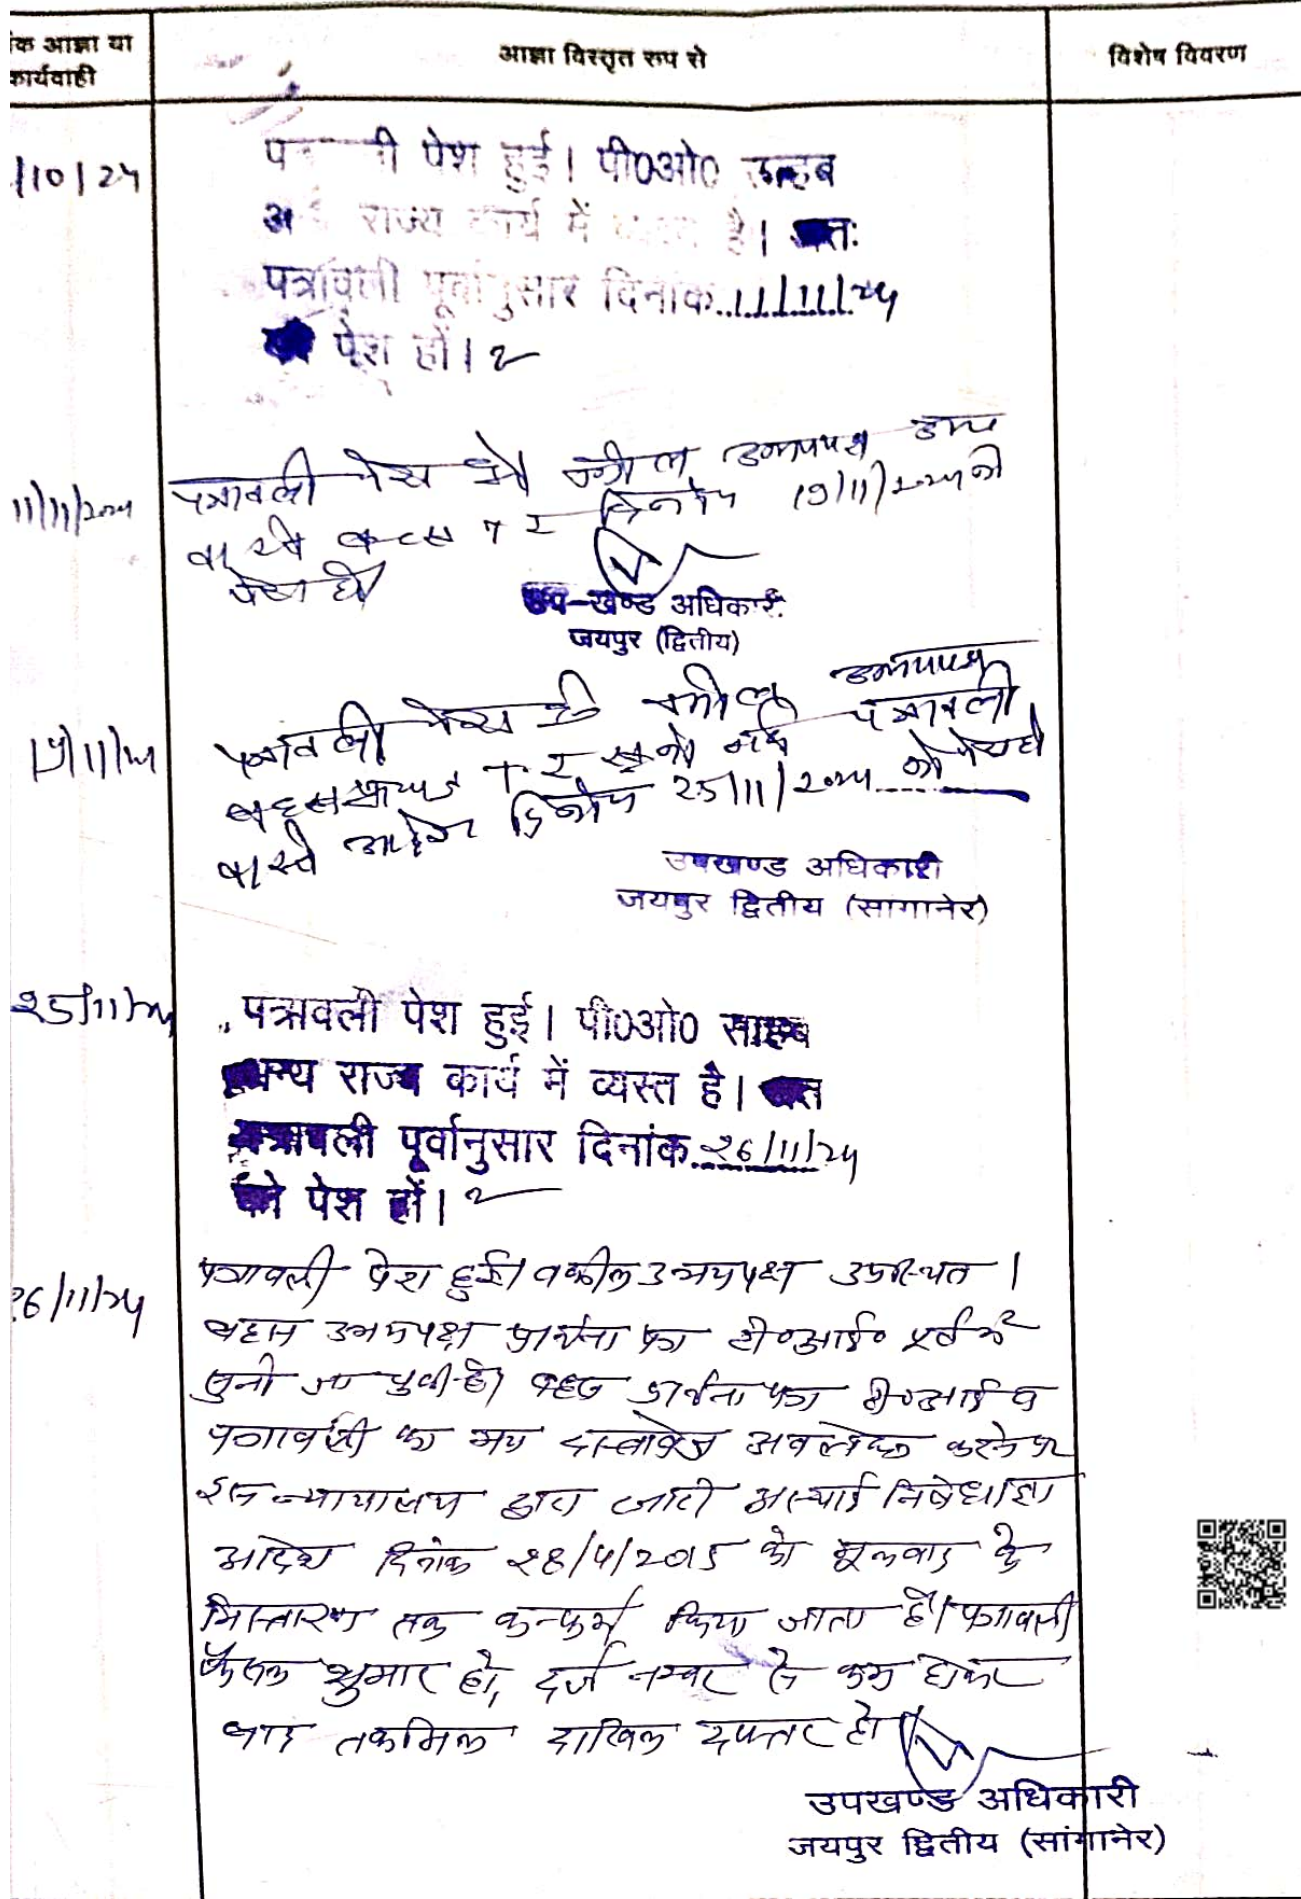 क आज्ञा या
कार्यवाही
आज्ञा विस्तृत रूप से
विशेष विवरण
/10/24
पेश हुई। पी0ओ0
राज्य कार्य में है। अतः
पत्रावली पूर्वानुसार दिनांक..11/11/24
को पेश हों।
11/11/2024
पत्रावली पेश हुई वकील उभयपक्ष उप०
वास्ते बहस T.I दिनांक 19/11/2024 को
पेश हो
उप-खण्ड अधिकारी
जयपुर (द्वितीय)
19/11/24
पत्रावली पेश हुई वकील उभयपक्ष
बहस T.I सुनी गई पत्रावली
वास्ते आदेश दिनांक 25/11/2024 को पेश हो
उपखण्ड अधिकारी
जयपुर द्वितीय (सांगानेर)
25/11/24
पत्रावली पेश हुई। पी0ओ0 साहब
अन्य राज्य कार्य में व्यस्त है। अत
पत्रावली पूर्वानुसार दिनांक..26/11/24
को पेश हों।
26/11/24
पत्रावली पेश हुई। वकील उभयपक्ष उपस्थित।
बहस उभयपक्ष प्रार्थना पत्र टी०आई० पूर्व में
सुनी जा चुकी है। बहस प्रार्थना पत्र टी०आई व
पत्रावली का मय दस्तावेज अवलोकन करने पर
इस न्यायालय द्वारा जारी अस्थाई निषेधाज्ञा
आदेश दिनांक 28/4/2015 को मूलवाद के
निस्तारण तक कन्फर्म किया जाता है। पत्रावली
फैसल शुमार हो, दर्ज नम्बर से कम होकर
बाद तकमिल दाखिल दफ्तर हो।
उपखण्ड अधिकारी
जयपुर द्वितीय (सांगानेर)